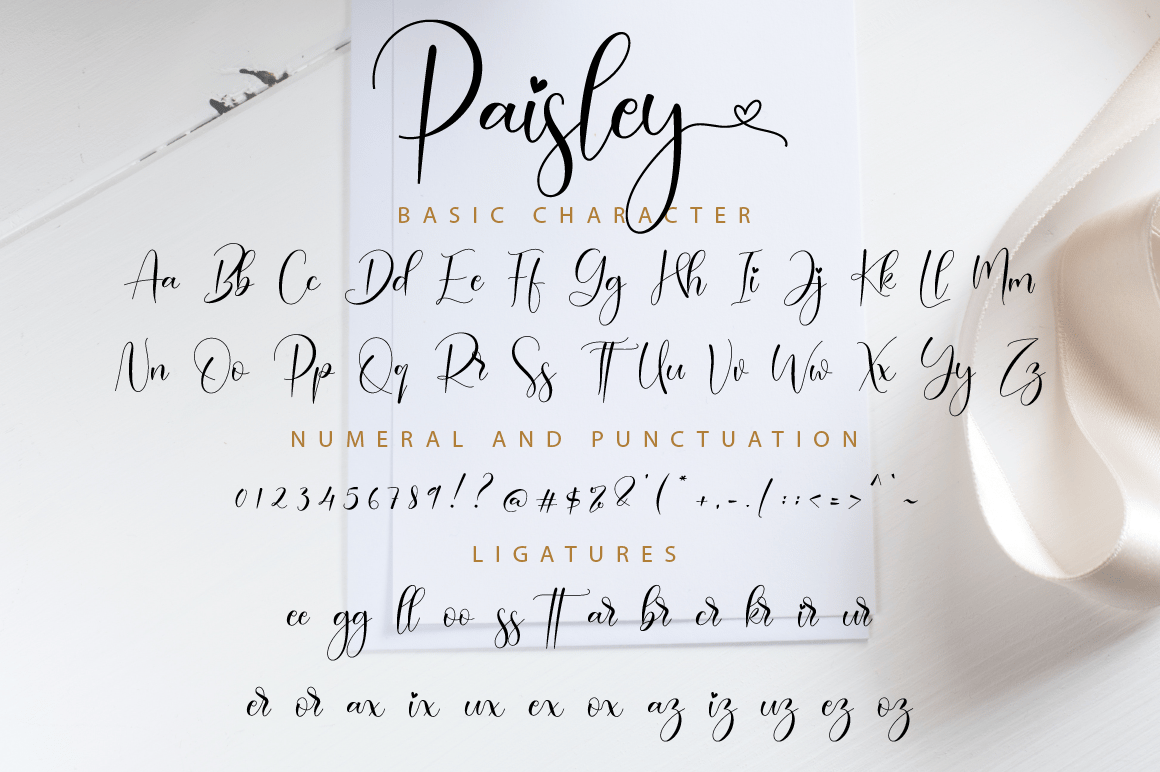 Paisley
BASIC CHARACTER
Aa Bb Cc Dd Ee Ff Gg Hh Ii Jj Kk Ll Mm
Nn Oo Pp Qq Rr Ss Tt Uu Vv Ww Xx Yy Zz
NUMERAL AND PUNCTUATION
0 1 2 3 4 5 6 7 8 9 ! ? @ # $ % & ' ( * + , - . / : ; < = > ^ ` ~
LIGATURES
ee gg ll oo ss tt ar br cr kr ir ur
er or ax ix ux ex ox az iz uz ez oz